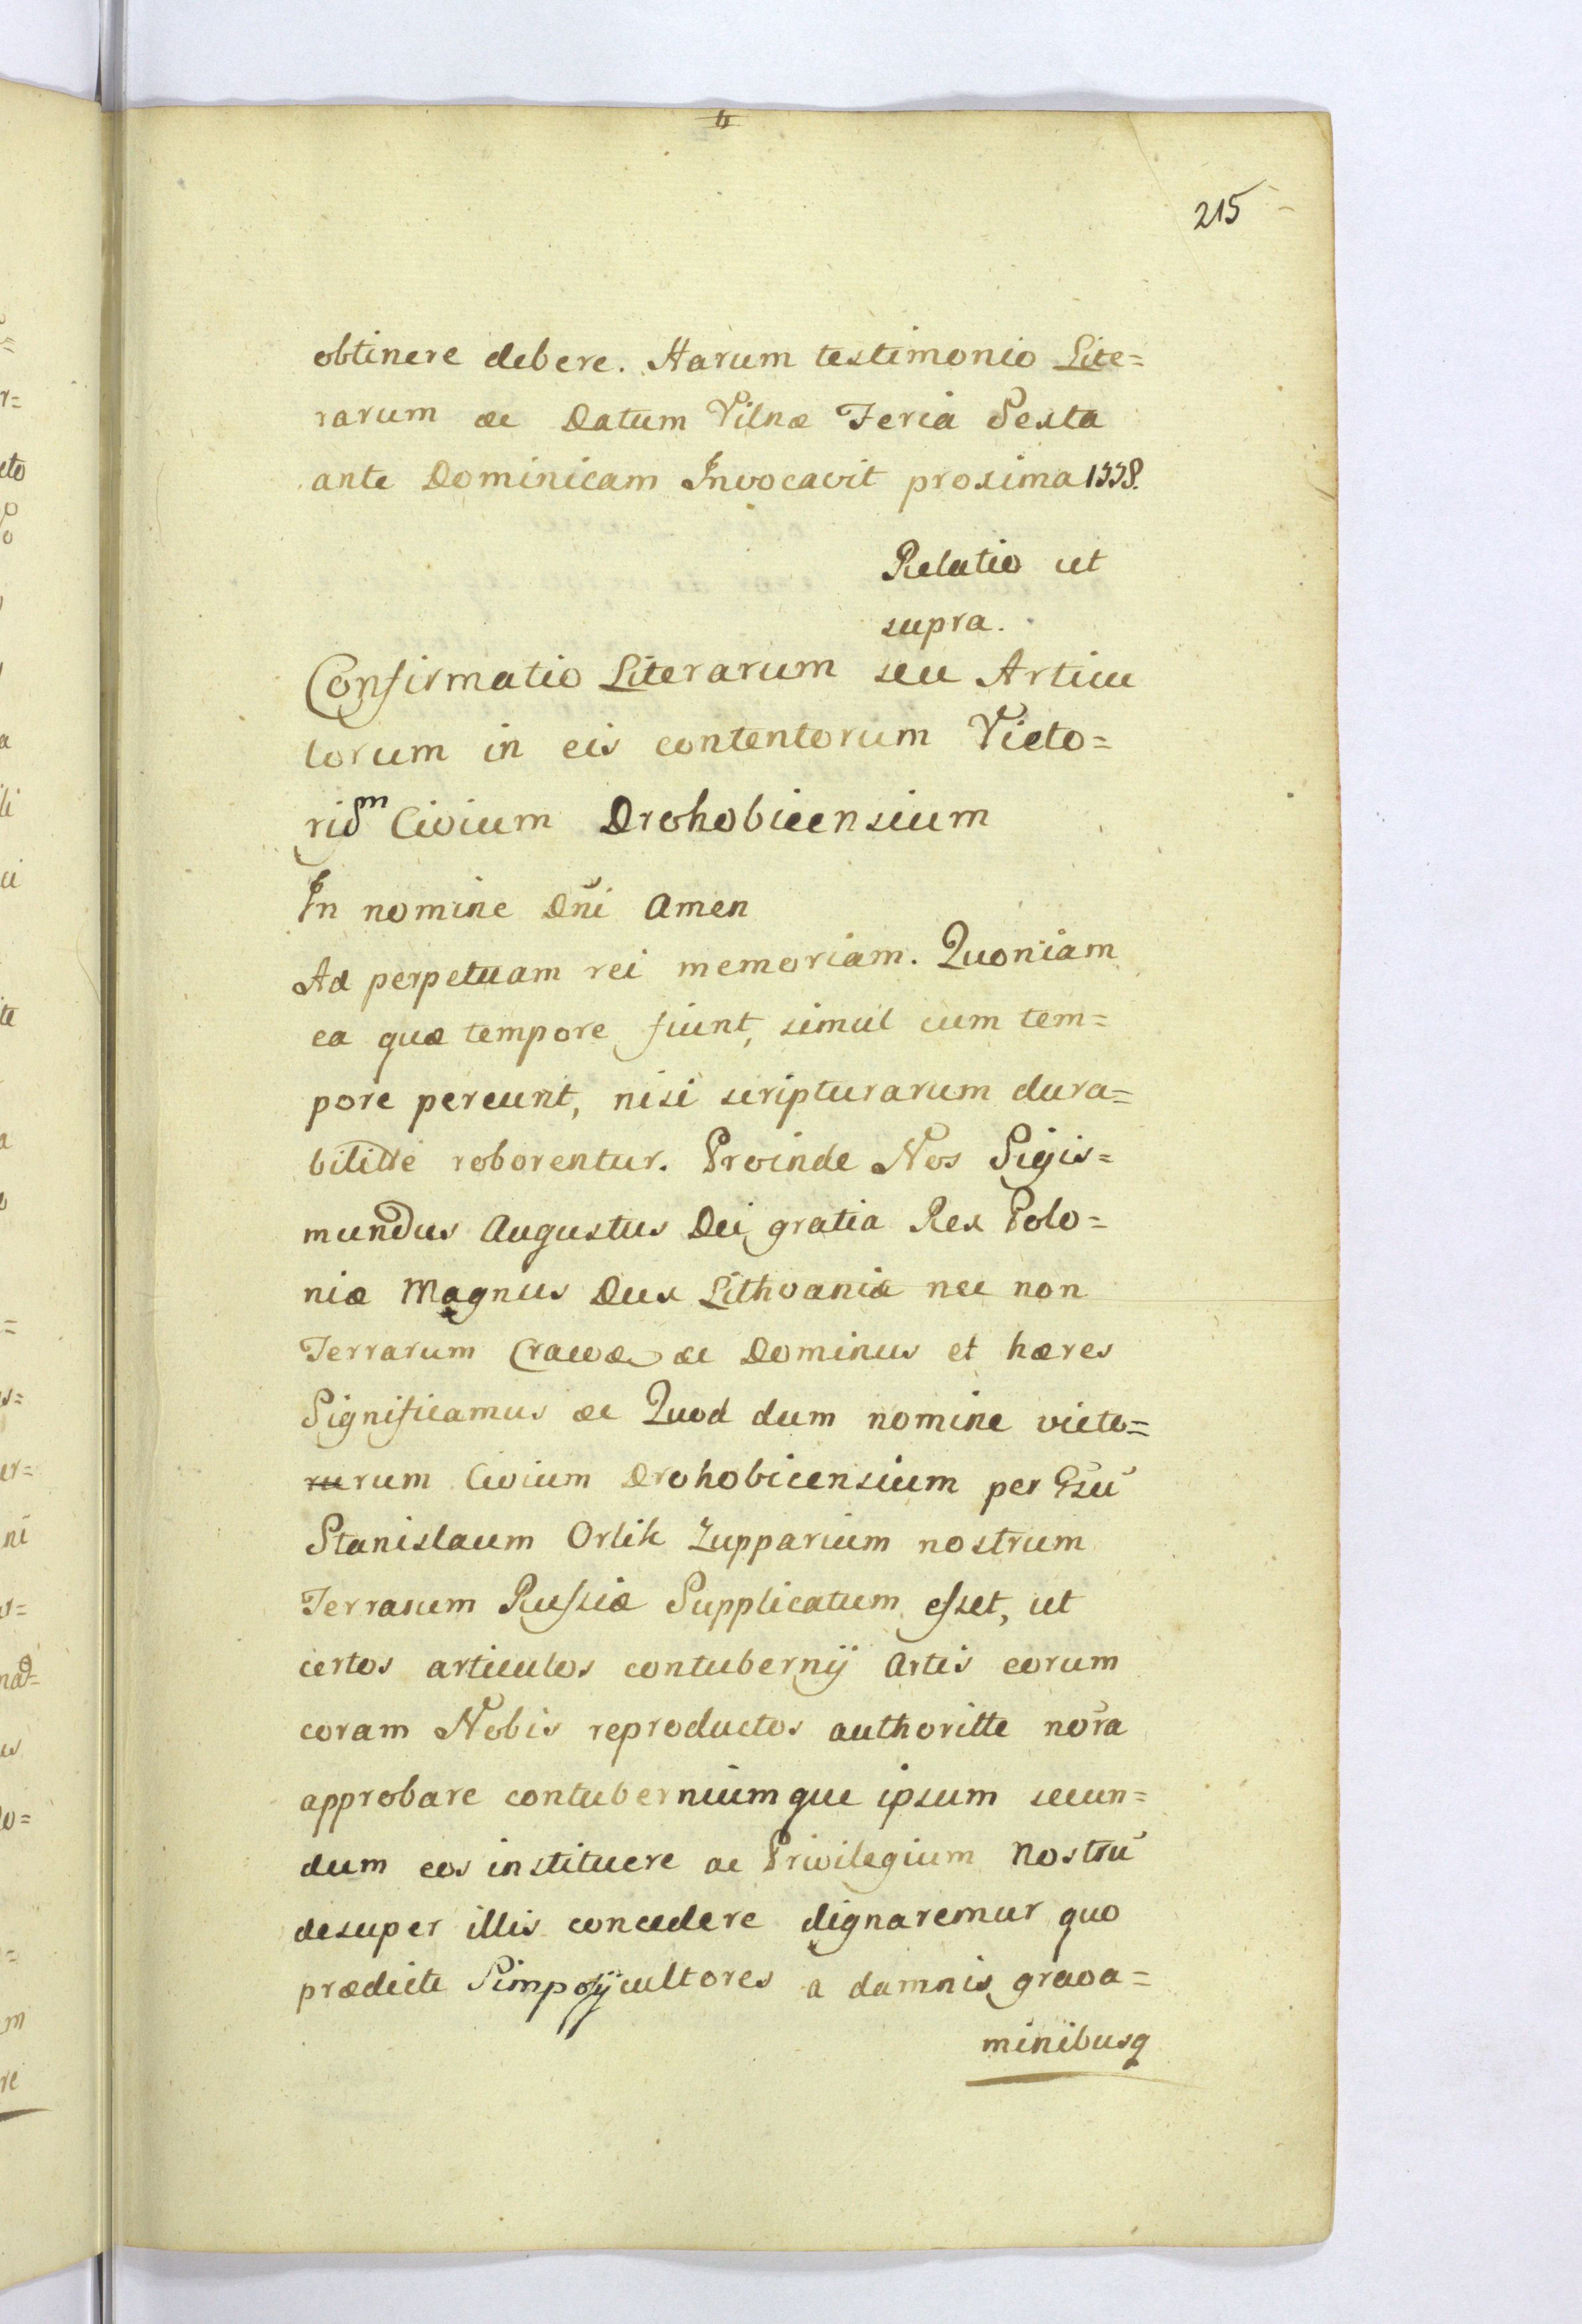 215
obtinere debere. Harum testimonio Lite=
rarum &c Datum Vilnæ Feria Sexta
ante Dominicam Invocavit proxima 1558.
Relatio ut
supra.
Confirmatio Literarum seu Articu
lorum in eis contentorum Vieto=
Civium Drohobicensium
In nomine Dñi Amen
Ad perpetuam rei memoriam. Quoniam
ea quæ tempore fiunt, simul cum tem=
pore pereunt, nisi scripturarum dura=
bilitte roborentur. Proinde Nos Sigis=
mundus Augustus Dei gratia Rex Polo=
niæ Magnus Dux Lithvaniæ nec non
Terrarum Cracoæ &c Dominus et hæres
Significamus &c Quod dum nomine vieto=
rurum Civium Drohobicensium per
Stanislaum Orlik Zupparium nostrum
Terrarum Russiæ Supplicatum esset, ut
certos articulos contubernij Artis eorum
coram Nobis reproductos authoritte nora
approbare contuberniumque ipsum secun=
dum eos instituere ac Privilegium Nostrũ
desuper illis concedere dignaremur quo
prædicte Simposij cultores a damnis grava=
minibusq